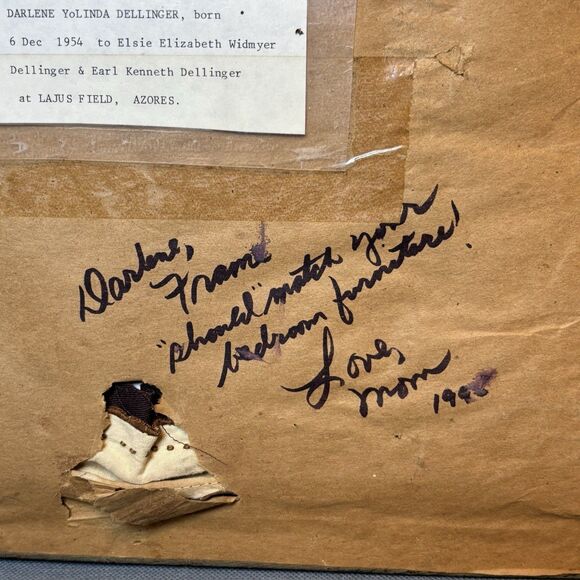 DARLENE YoLINDA DELLINGER, born
6 Dec 1954 to Elsie Elizabeth Widmyer
Dellinger & Earl Kenneth Dellinger
at LAJUS FIELD, AZORES.
Darlene,
Frame
"should" match your
bedroom furniture!
Love,
Mom